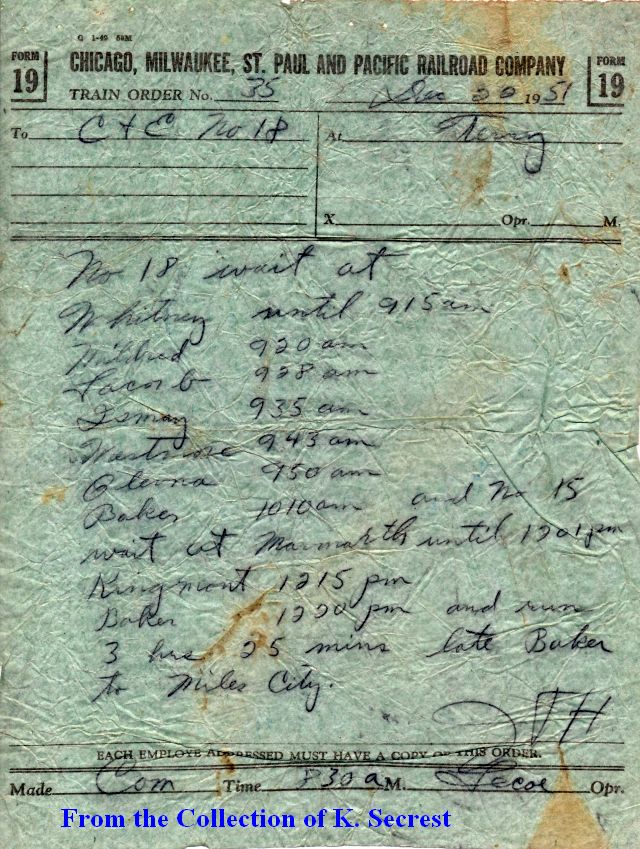 G 1-49 50M
FORM 19
CHICAGO, MILWAUKEE, ST. PAUL AND PACIFIC RAILROAD COMPANY
FORM 19
TRAIN ORDER No. 35 Dec 20 1951
To C & E No 18 At Terry
X. Opr. M.
No 18 wait at
Whitney until 915 am
Mildred 920 am
928 am
Ismay 935 am
Westmore 943 am
950 am
Baker 1010 am and No 15
wait at Marmarth until 1201 pm
Kingmont 1215 pm
Baker 1220 pm and run
3 hrs 25 mins late Baker
to Miles City.
JTH
EACH EMPLOYE ADDRESSED MUST HAVE A COPY OF THIS ORDER.
Made Com Time 830 a M. Opr.
From the Collection of K. Secrest